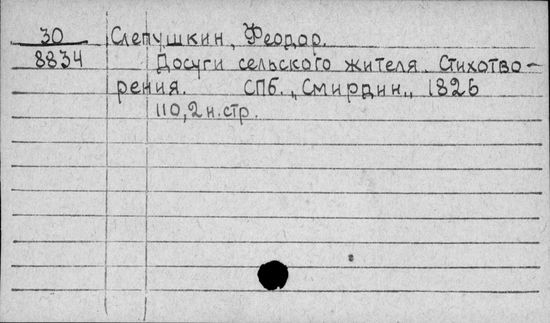 30 Слепушкин, Феодор.
8834 Досуги сельского жителя. Стихотво-
рения. СПб. „Смирдин„, 1826
110,2 н.стр.